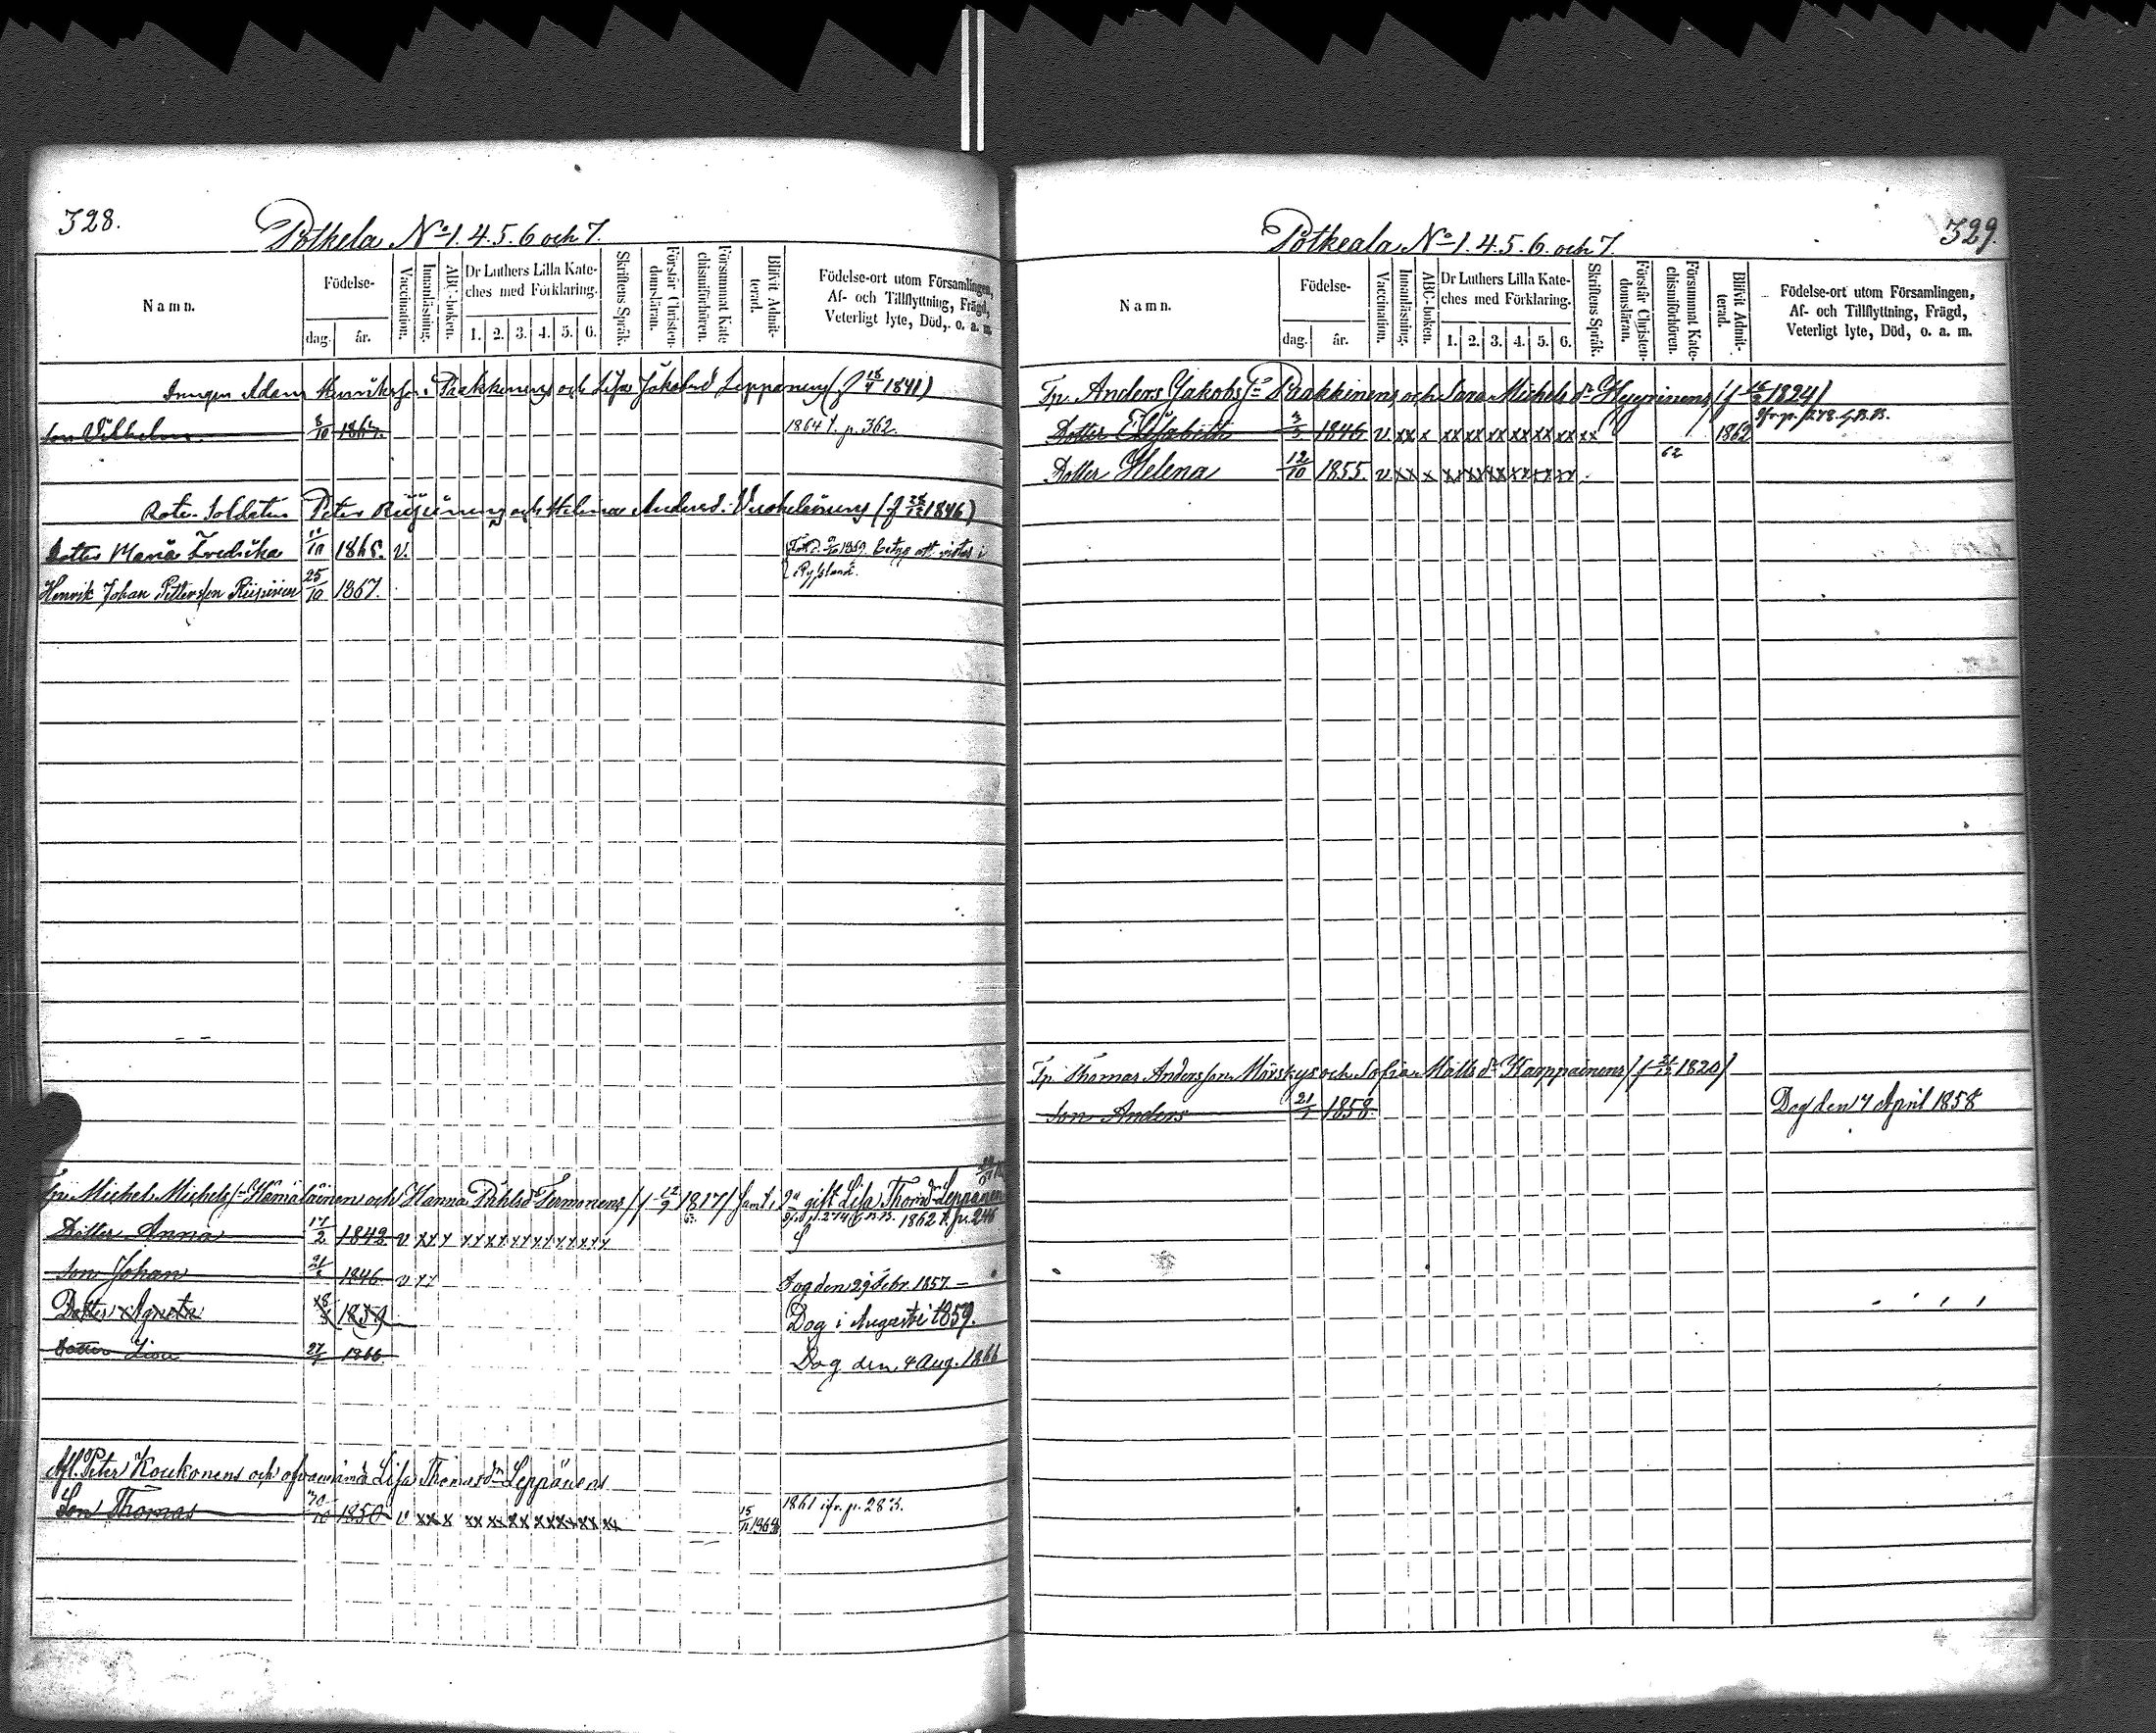 328.
Potkela No 1. 4. 5. 6 och 7.
Namn.
Födelse-
dag.
år.
Vaccination.
Innanläsning.
ABC-boken.
Dr Luthers Lilla Kate-
ches med Förklaring.
1. 2. 3. 4. 5. 6.
Skriftens Språk.
Förstår Christen-
domsläran.
Försummat Kate
chismiförhören.
Blifvit Admit-
terad.
Födelse-ort utom Församlingen,
Af- och Tillflyttning, Frägd,
Veterligt lyte, Död, o. a. m.
Adam Henriksson Paakkonens och Lisa Jakobsd Leppänens (f 18/4 1841)
Son Vilhelm 8/10 1862. 1864 t. p. 362.
Rote Soldaten Peter och Helena Andersd. (f 1846)
Dotter Maria Fredrika 11/10 1865. v. 1869. betyg att vistas i
Ryssland.
Henrik Johan Pettersson 25/10 1867.
Tp. Michel Michelsson och Hanna Påhlsd Termonens (f 12/9 1817) samt i 2a gift Lisa Thomdr Leppänen
1862 t. p. 246
Dotter Anna 17/2 1842 v xx x xx xx xx xx xx xx
Son Johan 1846 v Dog den 29 Febr. 1857.
Dotter Agneta 1859 Dog i Augusti 1859.
Dotter Lisa 27/7 1866 Dog den 4 Aug. 1866
Afl. Peter Koukonens och ofvannämnda Lisa Thomasdr Leppänens
Son Thomas 30/10 1850 v xx x xx xx xx xx xx xx xx 1861 ifr. p. 283.
329.
Potkeala No 1. 4. 5. 6. och 7.
Namn.
Födelse-
dag.
år.
Vaccination.
Innanläsning.
ABC-boken.
Dr Luthers Lilla Kate-
ches med Förklaring.
1. 2. 3. 4. 5. 6.
Skriftens Språk.
Förstår Christen-
domsläran.
Försummat Kate-
chismiförhören.
Blifvit Admit-
terad.
Födelse-ort utom Församlingen,
Af- och Tillflyttning, Frägd,
Veterligt lyte, Död, o. a. m.
Tp. Anders Jakobsson Paakkinens och Sara Michelsdr Hyyrinens (f 1824)
Dotter Elisabeth 3/3 1846 v xx x xx xx xx xx xx xx xx 1862
62
Dotter Helena 12/10 1855. v xx x xx xx xx xx xx xx
Tp. Thomas Andersson och Sofia Mattsdr Karppainens (f 1820)
Son Anders 21/1 1858. Dog den 7 April 1858